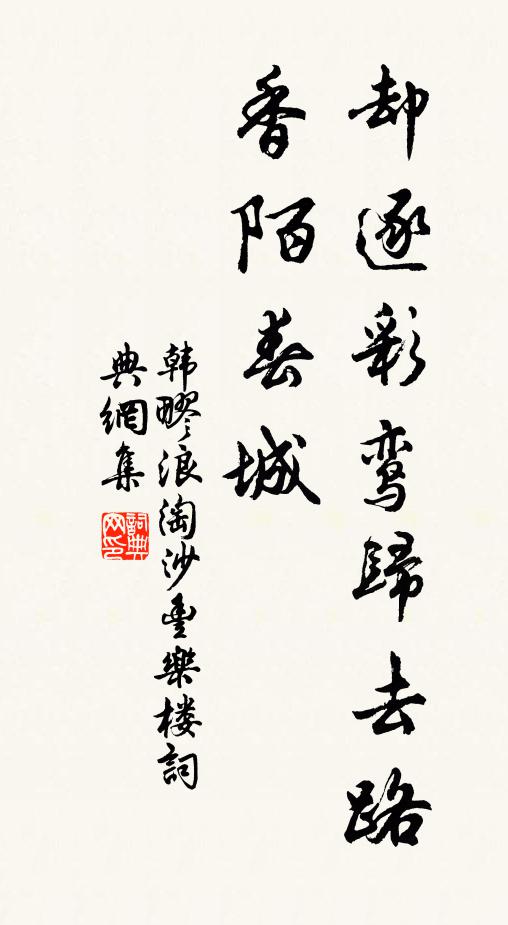 却逐彩鸾歸去路
香陌春城
韩疁浪淘沙豐樂楼詞
典網集
詞典
网印